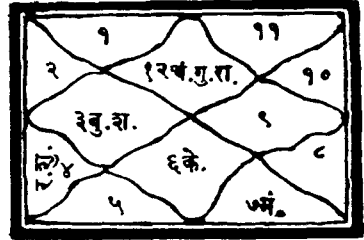 १ ११
२ १२ चं.गु.रा. १०
३ बु.श. ९
४ ८
६ के.
५ ७ मं.